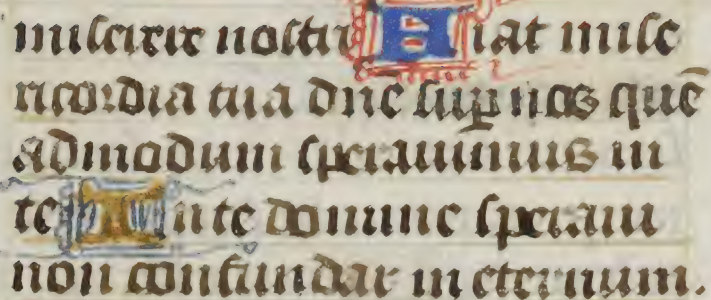 miserere nostri Fiat mise
ricordia tua dne sup nos quē
admodum speravimus in
te In te domine speravi
non confundar in eternum.